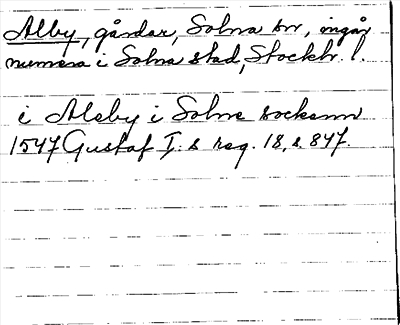 Alby, gårdar, Solna sn, ingår
numera i Solna stad, Stockh. l.
i Aleby i Solne sockenn
1547 Gustaf I:s reg. 18, s. 847.